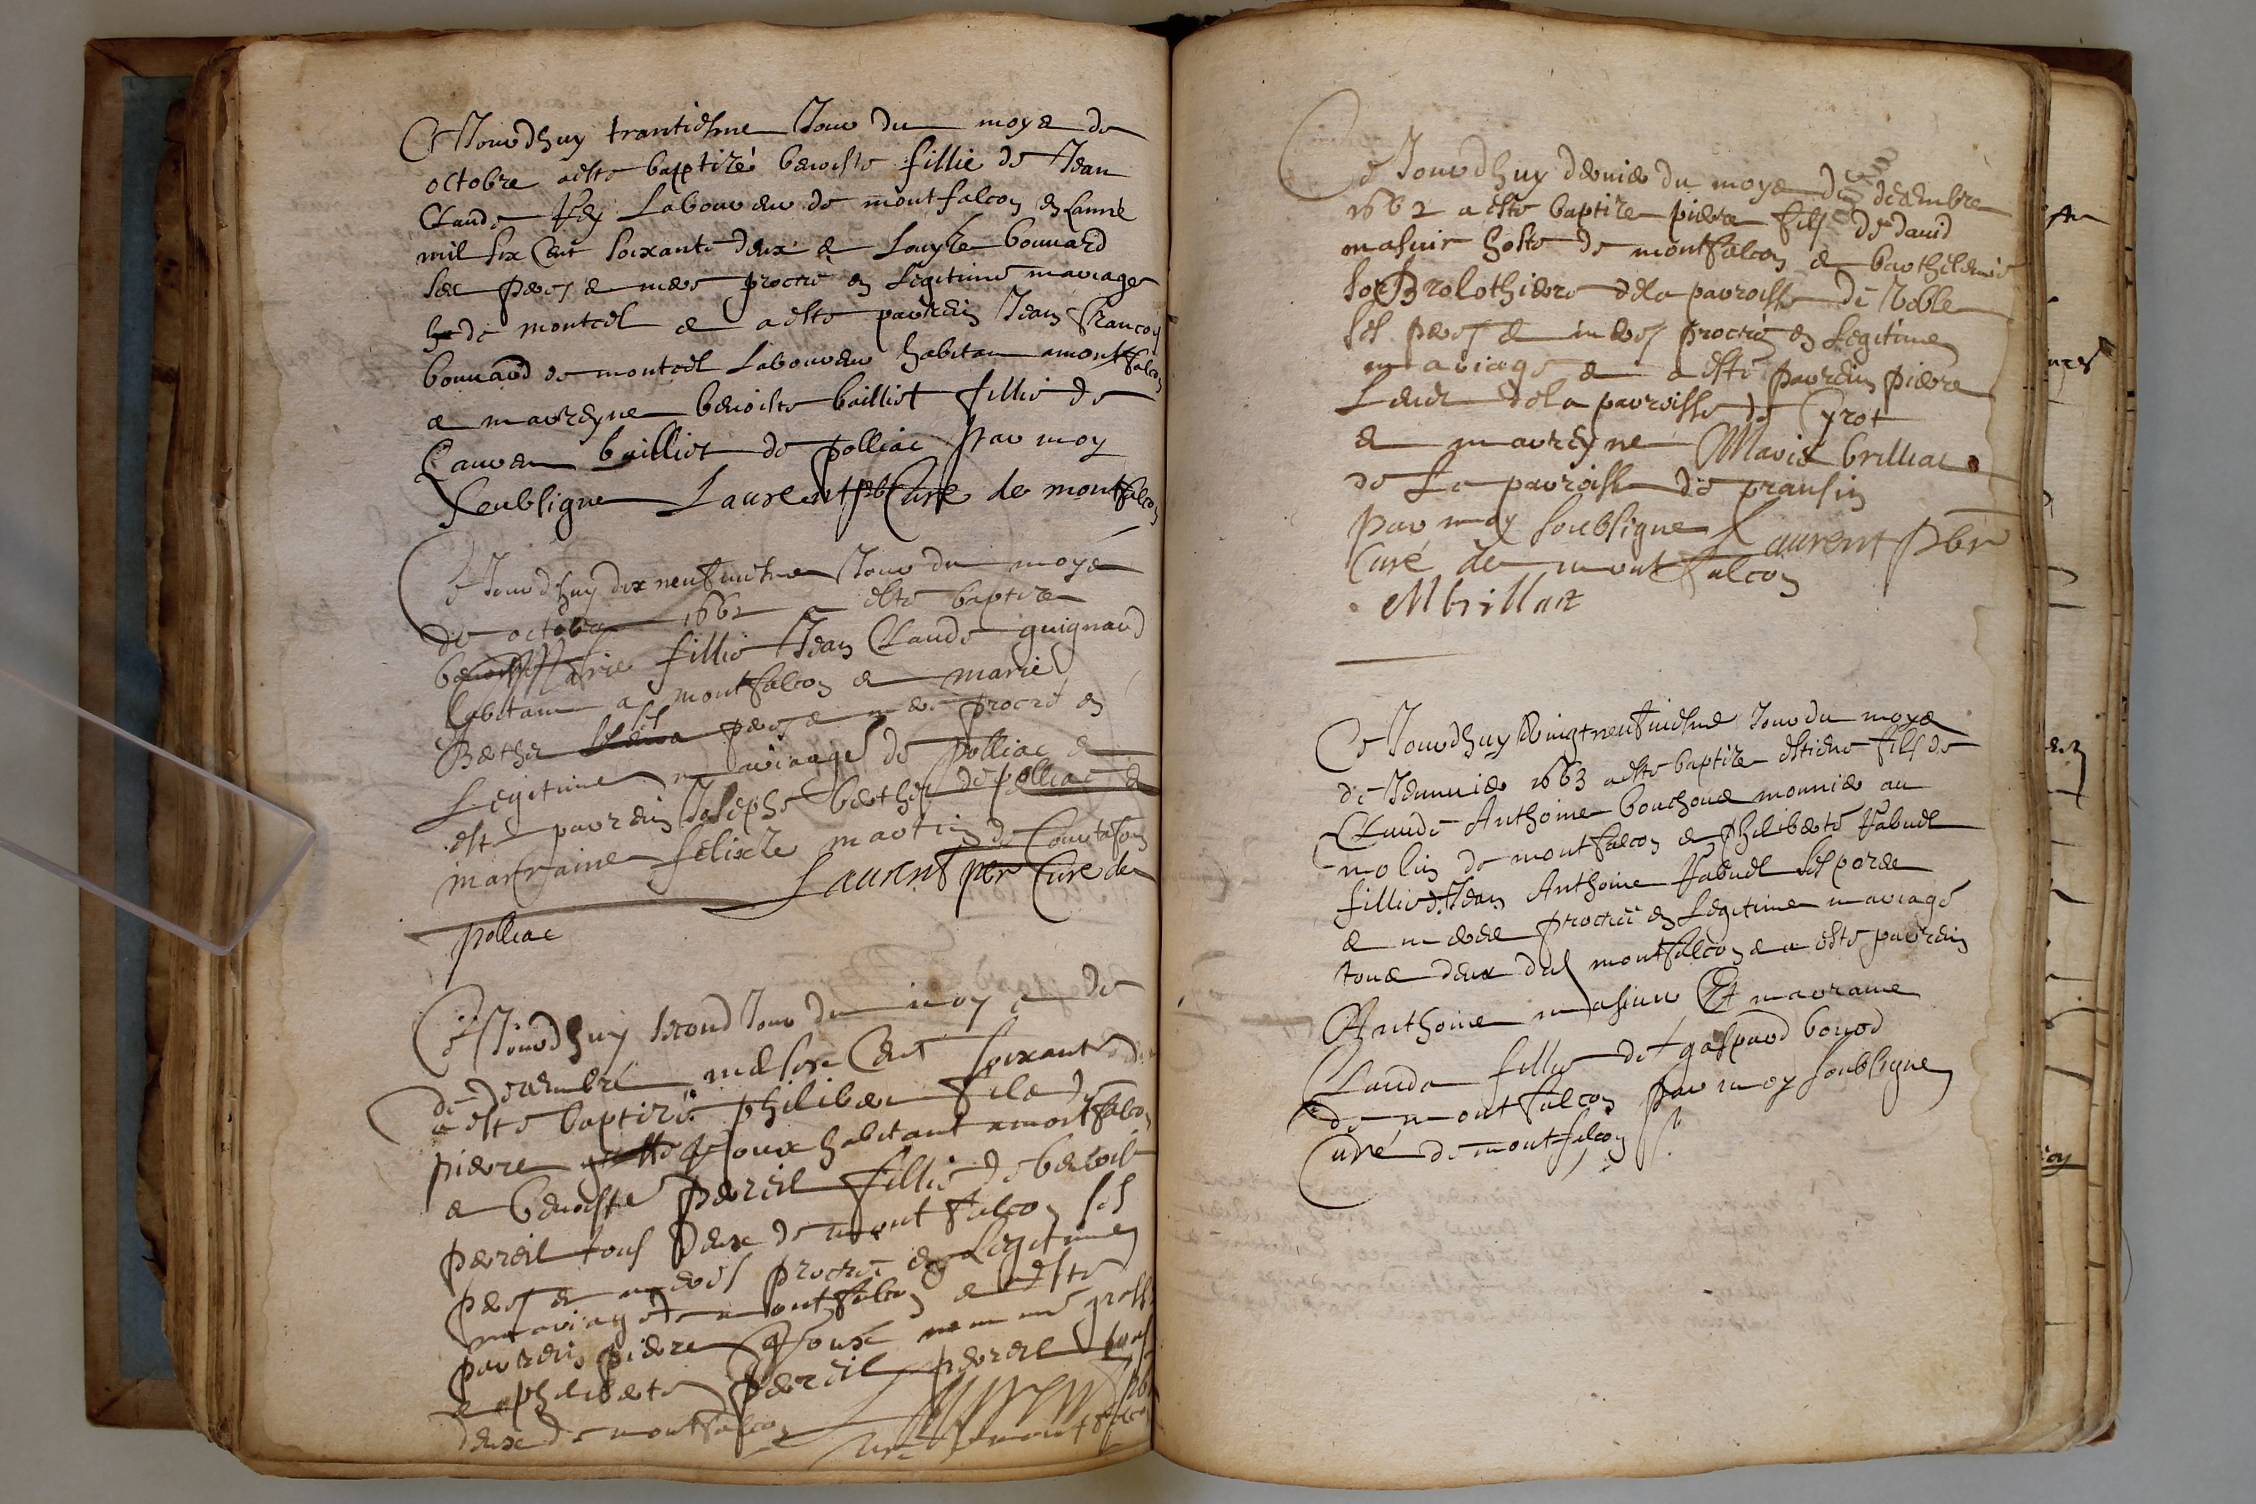 Ce Jourdhuy trantiesme Jour du moys de
octobre a esté baptizé benoiste fillie de Jean
Claude Laboureur de montfalcon en Lanné
mil six Cent soixante deux & Louyse bouuard
ses peres & mere procréé en Legitime mariage
de montcel & a esté parrein Jean Francoys
bouuard de montcel Laboureur habitan a montfalcon
& marreyne benoiste bailliet fillie de
bailliet de polliac par moy
soubsigne Laurent pbr Curé de montfalcon
Ce Jourdhuy dix neufuiesme Jour du moys
de octobre 1662 esté baptize
Marie fillie Jean Claude guignard
habitan a montfalcon & marie
Bethe ses peres & mere procré en
Legitime mariage de polliac &
esté parrein Josephe bethe de polliac &
marraine felixte martin de Courtafon
Laurent pbr Curé de
polliac
Ce Jourdhuy second Jour du moys de
de decembre mil six Cent soixante deux
a esté baptizé philiber fils de
pierre Joux habitant a montfalcon
& benoiste perreil fillie de benoist
perreil tous deux de montfalcon ses
peres & meres procréé en Legitime
mariage de montfalcon & a esté
parrein pierre Joux
& philiberte perreil tous
deux de montfalcon
Curé de montfalcon
Ce Jourdhuy dernier du moys de decembre
1662 a esté baptize pierre fils de dauid
masuir hoste de montfalcon & barthelemie
Brolothiere de la parroisse de
ses peres & meres procréé en Legitime
mariage & a esté parrein pierre
de la parroisse de Cyrot
& marreyne Marie brilliat
de La parroisse de
par moy soubsigne Laurent pbr
Curé de montfalcon
M brillat
Ce Jourdhuy vingt neufuiesme Jour du moys
de Januier 1663 a esté baptize estiene fils de
Claude Anthoine bouchoux mounier au
molin de montfalcon & philiberte
fillie de Jean Anthoine ses peres
& meres procréé en Legitime mariage
tous deux de montfalcon & a esté parrein
Anthoine masuir Et marraine
Claude fillie de gaspard
de montfalcon par moy soubsigne
Curé de montfalcon